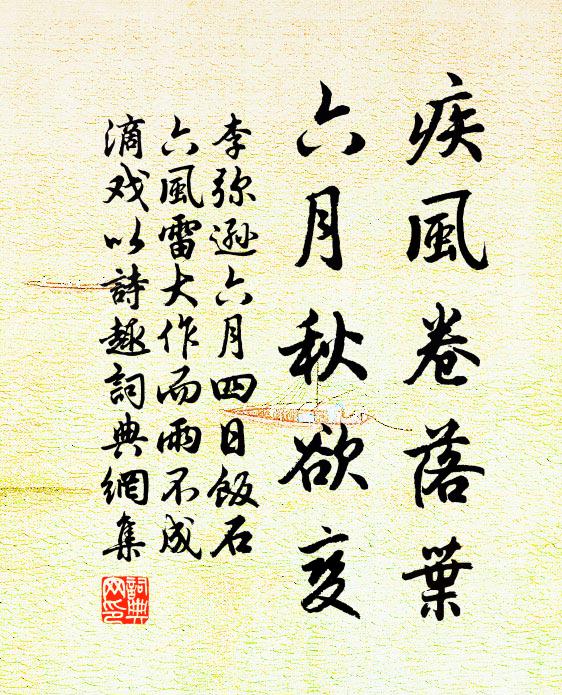 疾風卷落葉
六月秋欲变
李弥遜六月四日飯石
六風雷大作而雨不成
滴戏以詩趣詞典網集
詞典
网印